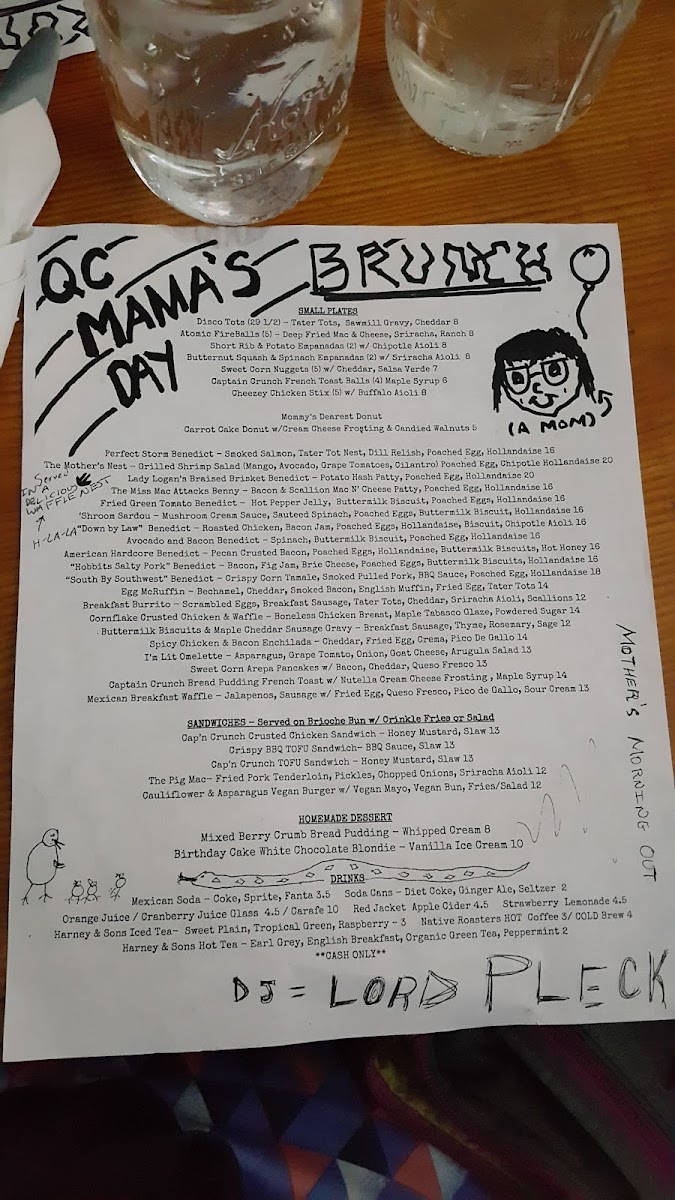 QC
MAMA'S
DAY
BRUNCH
(A MOM)
SMALL PLATES
Disco Tots (29 1/2) - Tater Tots, Sawmill Gravy, Cheddar 8
Atomic FireBalls (5) - Deep Fried Mac & Cheese, Sriracha, Ranch 8
Short Rib & Potato Empanadas (2) w/ Chipotle Aioli 8
Butternut Squash & Spinach Empanadas (2) w/ Sriracha Aioli 8
Sweet Corn Nuggets (5) w/ Cheddar, Salsa Verde 7
Captain Crunch French Toast Balls (4) Maple Syrup 6
Cheezey Chicken Stix (5) w/ Buffalo Aioli 8
Mommy's Dearest Donut
Carrot Cake Donut w/Cream Cheese Frosting & Candied Walnuts 5
Perfect Storm Benedict - Smoked Salmon, Tater Tot Nest, Dill Relish, Poached Egg, Hollandaise 16
The Mother's Nest - Grilled Shrimp Salad (Mango, Avocado, Grape Tomatoes, Cilantro) Poached Egg, Chipotle Hollandaise 20
Lady Logan's Braised Brisket Benedict - Potato Hash Patty, Poached Egg, Hollandaise 20
The Miss Mac Attacks Benny - Bacon & Scallion Mac N' Cheese Patty, Poached Egg, Hollandaise 16
Fried Green Tomato Benedict - Hot Pepper Jelly, Buttermilk Biscuit, Poached Eggs, Hollandaise 16
'Shroom Sardou - Mushroom Cream Sauce, Sauteed Spinach, Poached Eggs, Buttermilk Biscuit, Hollandaise 16
"Down by Law" Benedict - Roasted Chicken, Bacon Jam, Poached Eggs, Hollandaise, Biscuit, Chipotle Aioli 16
Avocado and Bacon Benedict - Spinach, Buttermilk Biscuit, Poached Egg, Hollandaise 16
American Hardcore Benedict - Pecan Crusted Bacon, Poached Eggs, Hollandaise, Buttermilk Biscuits, Hot Honey 16
"Hobbits Salty Pork" Benedict - Bacon, Fig Jam, Brie Cheese, Poached Eggs, Buttermilk Biscuits, Hollandaise 16
"South By Southwest" Benedict - Crispy Corn Tamale, Smoked Pulled Pork, BBQ Sauce, Poached Egg, Hollandaise 18
Egg McRuffin - Bechamel, Cheddar, Smoked Bacon, English Muffin, Fried Egg, Tater Tots 14
Breakfast Burrito - Scrambled Eggs, Breakfast Sausage, Tater Tots, Cheddar, Sriracha Aioli, Scallions 12
Cornflake Crusted Chicken & Waffle - Boneless Chicken Breast, Maple Tabasco Glaze, Powdered Sugar 14
Buttermilk Biscuits & Maple Cheddar Sausage Gravy - Breakfast Sausage, Thyme, Rosemary, Sage 12
Spicy Chicken & Bacon Enchilada - Cheddar, Fried Egg, Crema, Pico De Gallo 14
I'm Lit Omelette - Asparagus, Grape Tomato, Onion, Goat Cheese, Arugula Salad 13
Sweet Corn Arepa Pancakes w/ Bacon, Cheddar, Queso Fresco 13
Captain Crunch Bread Pudding French Toast w/ Nutella Cream Cheese Frosting , Maple Syrup 14
Mexican Breakfast Waffle - Jalapenos, Sausage w/ Fried Egg, Queso Fresco, Pico de Gallo, Sour Cream 13
Served
IN A
DELICIOUS
WAFFLE NEST
H-LA-LA
MOTHER'S MORNING OUT
SANDWICHES - Served on Brioche Bun w/ Crinkle Fries or Salad
Cap'n Crunch Crusted Chicken Sandwich - Honey Mustard, Slaw 13
Crispy BBQ TOFU Sandwich- BBQ Sauce, Slaw 13
Cap'n Crunch TOFU Sandwich - Honey Mustard, Slaw 13
The Pig Mac- Fried Pork Tenderloin, Pickles, Chopped Onions, Sriracha Aioli 12
Cauliflower & Asparagus Vegan Burger w/ Vegan Mayo, Vegan Bun, Fries/Salad 12
HOMEMADE DESSERT
Mixed Berry Crumb Bread Pudding - Whipped Cream 8
Birthday Cake White Chocolate Blondie - Vanilla Ice Cream 10
DRINKS
Mexican Soda - Coke, Sprite, Fanta 3.5 Soda Cans - Diet Coke, Ginger Ale, Seltzer 2
Orange Juice / Cranberry Juice Glass 4.5 / Carafe 10 Red Jacket Apple Cider 4.5 Strawberry Lemonade 4.5
Harney & Sons Iced Tea- Sweet Plain, Tropical Green, Raspberry - 3 Native Roasters HOT Coffee 3/ COLD Brew 4
Harney & Sons Hot Tea - Earl Grey, English Breakfast, Organic Green Tea, Peppermint 2
**CASH ONLY**
DJ = LORD PLECK